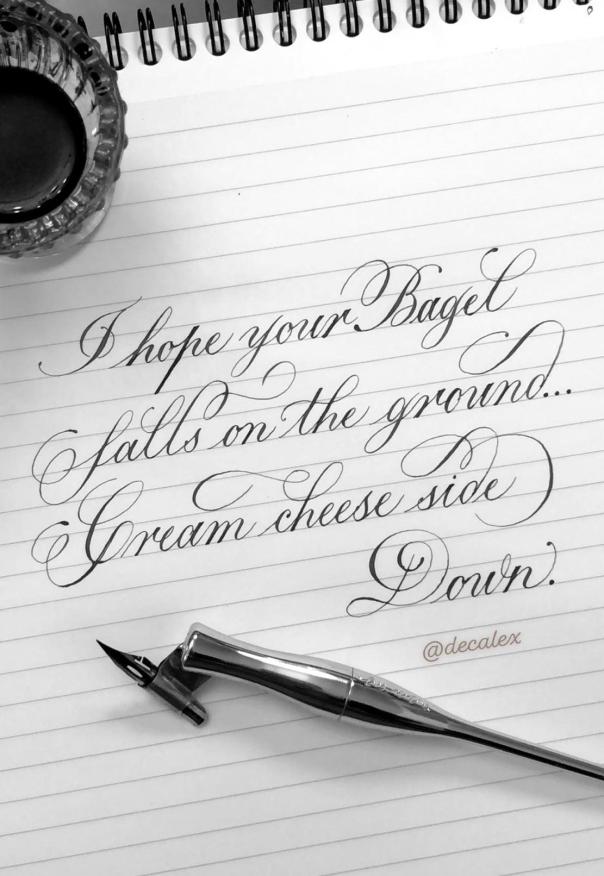 I hope your Bagel
falls on the ground...
Cream cheese side
Down.
@decalex